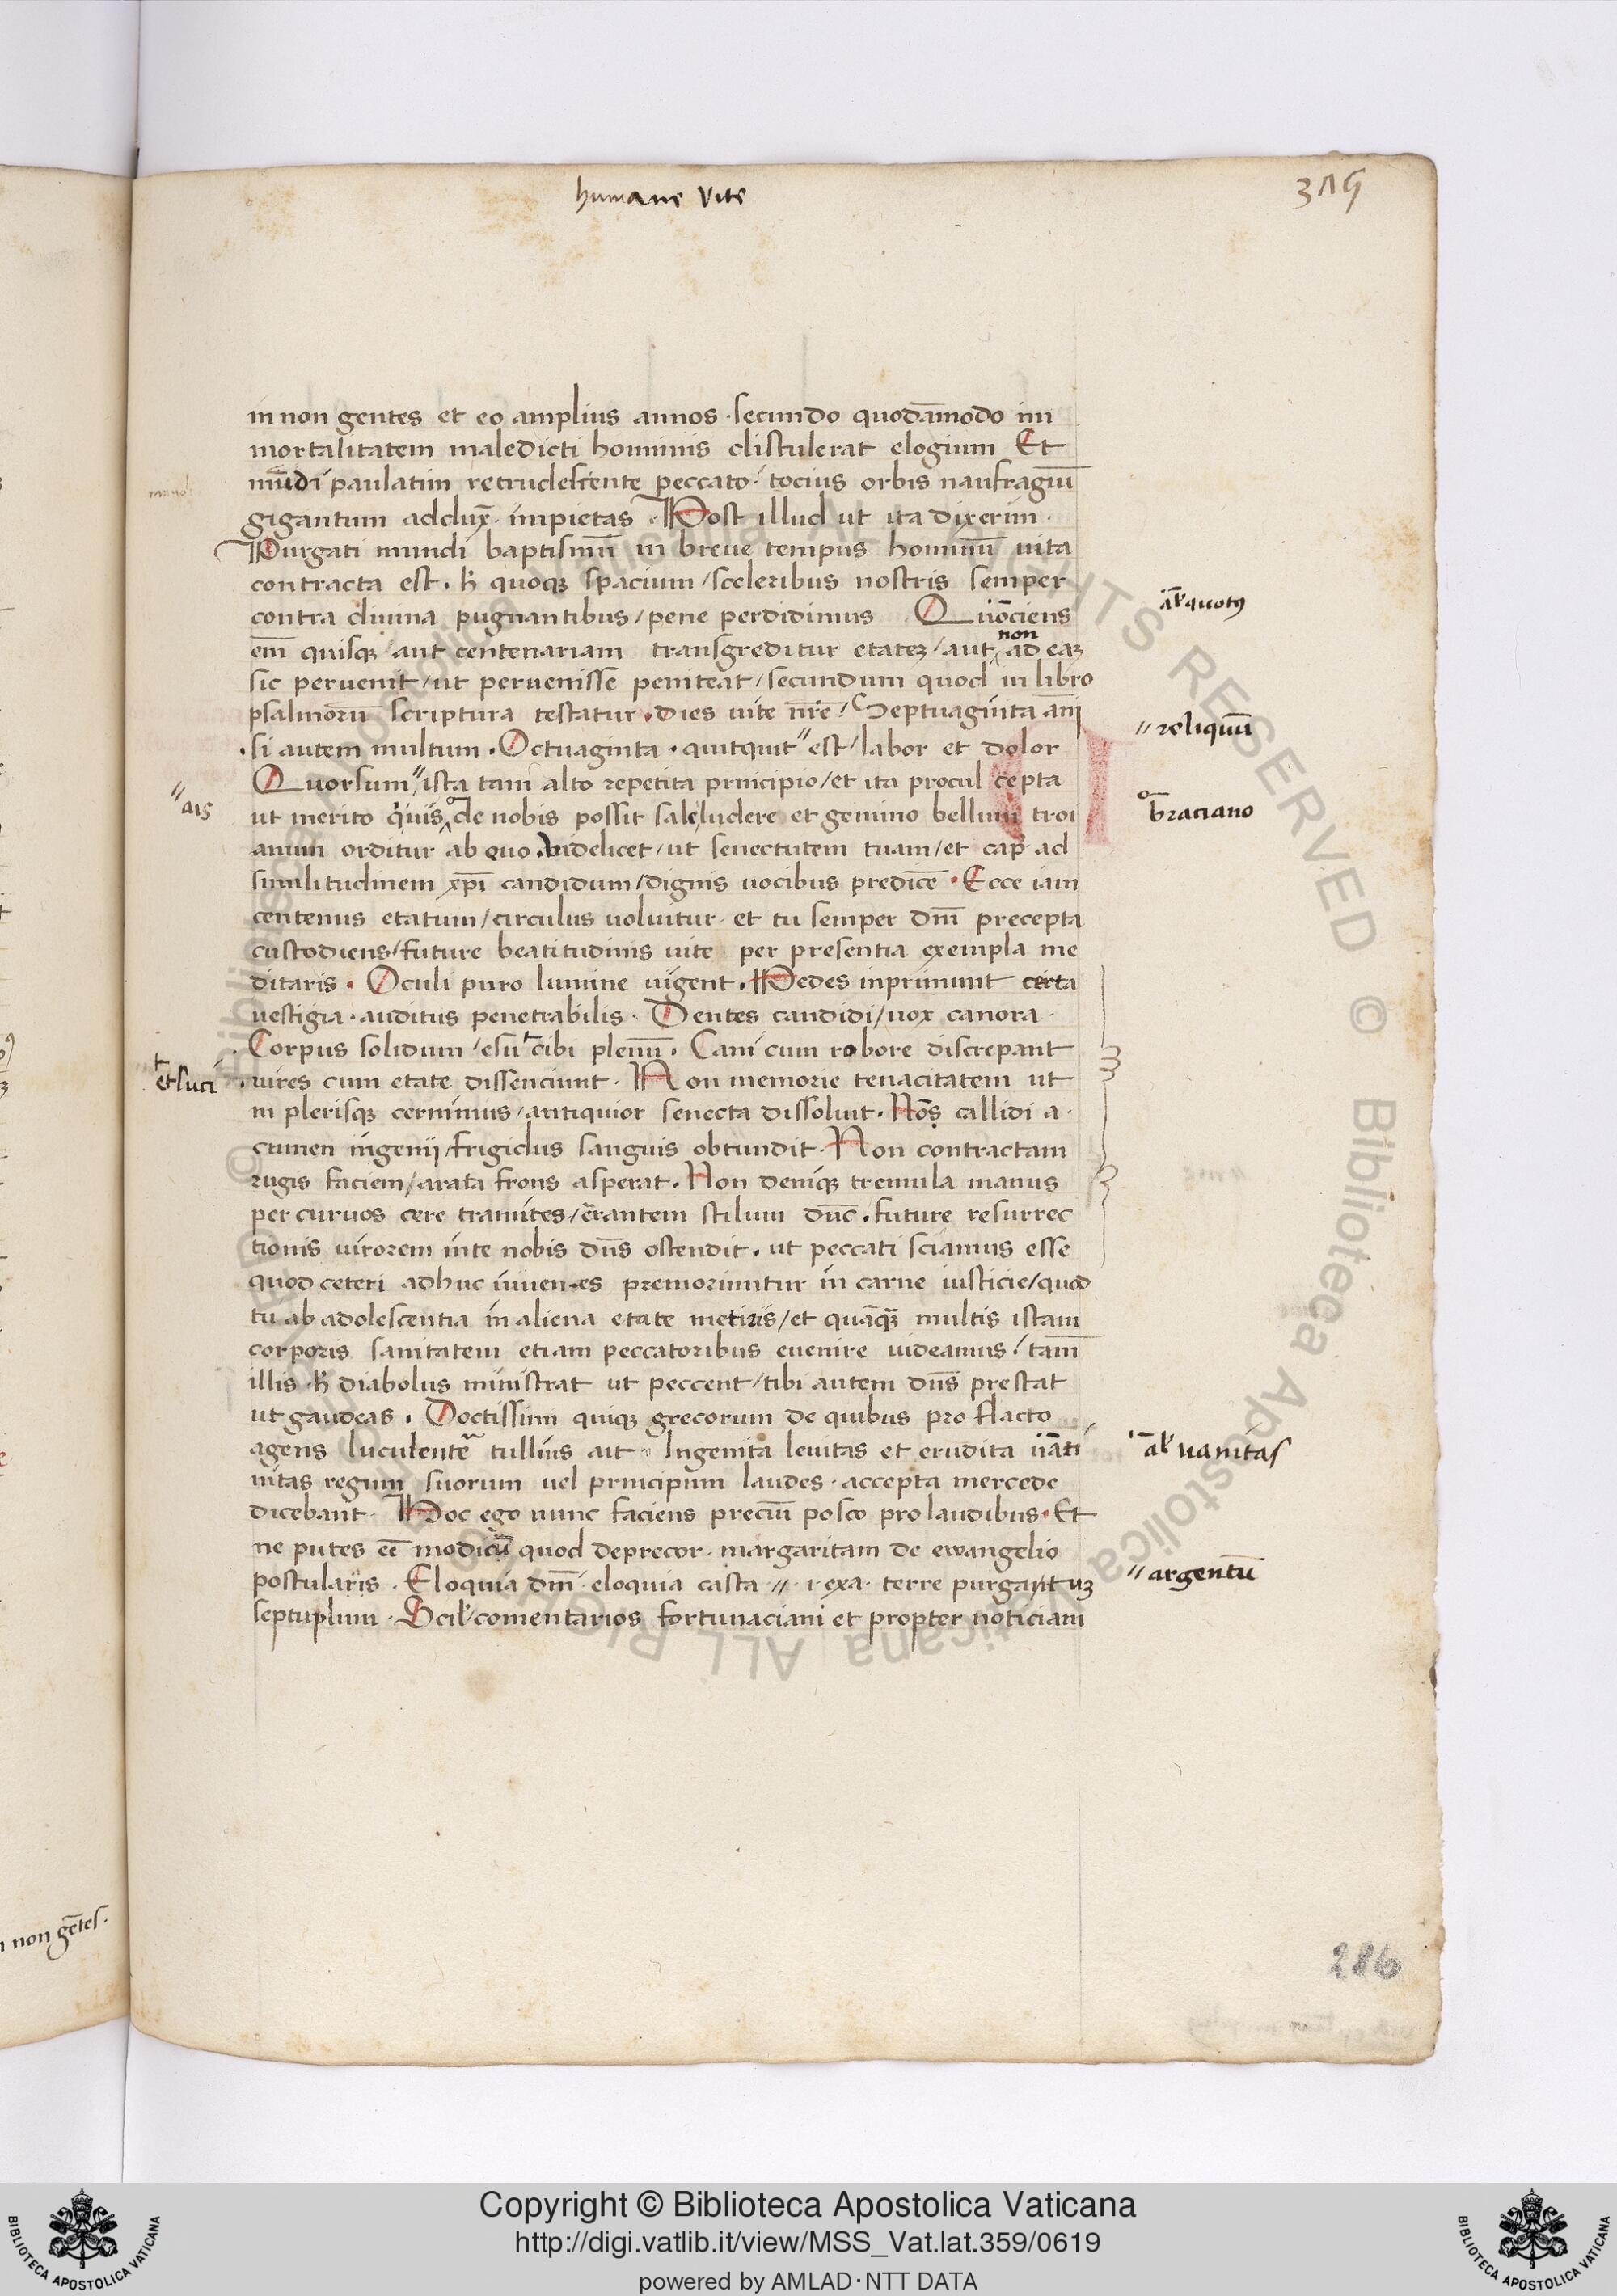 humane vite
in non gentes et eo amplius annos · secundo quodāmodo im
mortalitatem maledicti hominis distulerat elogium Et
mūdi paulatim retrudescente peccato tocius orbis naufragiū
gigantum addux̄ impietas · Post illud ut ita dixerim ·
Purgati mundi baptismū in breve tempus hominū vita
contracta est · h̄ quoqꝫ spacium / sceleribus nostris semper
contra divina pugnantibus / pene perdidimus Quōciens
al' quotꝰ
em̄ quisqꝫ / aut centenariam transgreditur etateꝫ / aut non ad eaꝫ
sic pervenit / ut pervenisse peniteat / secundum quod in libro
psalmorū scriptura testatur · dies vite nr̄e Septuaginta anī
// reliquū
· si autem multum · Octuaginta · quitquit // est / labor et dolor
Quorsum // ista tam alto repetita principio / et ita procul cepta
// ais
ut merito quis de nobis possit sale ludere et gemino bellum troi
braciano
anum orditur ab quo videlicet / ut senectutem tuam / et cap̄ ad
similitudinem xp̄i candidum / dignis vocibus predicē · Ecce iam
centenus etatum / circulus volvitur · et tu semper dn̄i precepta
custodiens / future beatitudinis vite per presentia exempla me
ditaris · Oculi puro lumine vigent · Pedes inprimunt certa
vestigia · auditus penetrabilis · Dentes candidi / vox canora ·
Corpus solidum / esu cibi plenū · Cani cum robore discrepant
et suci
· vires cum etate dissenciunt · Non memorie tenacitatem ut
in plerisqꝫ cernimus / antiquior senecta dissolvit · Nōs callidi a ·
cumen ingenij / frigidus sanguis obtundit · Non contractam
rugis faciem / arata frons asperat · Non deniqꝫ tremula manus
per curvos cere tramites / errantem stilum duc̄ · future resurrec
tionis virorem in te nobis dn̄s ostendit · ut peccati sciamus esse
quod ceteri adhuc iuvenes premoriuntur in carne iusticie / quod
tu ab adolescentia in aliena etate metiris / et quāqꝫ multis istam
corporis sanitatem etiam peccatoribus evenire videamus / tam̄
illis · h̄ diabolus ministrat ut peccent / tibi autem dn̄s prestat
ut gaudeas · Doctissimi quiqꝫ grecorum de quibus pro flacto
agens luculente tullius ait · Ingenita levitas et erudita vāti
al' vanitas
nitas regum suorum vel principum laudes · accepta mercede
dicebant · Hoc ego nunc faciens preciū posco pro laudibus · Et
ne putes eē modicū quod deprecor · margaritam de ewangelio
postularis · Eloquia dn̄i eloquia casta // · i · exa · terre purgatuꝫ
// argentū
septuplum · Scil' comentarios fortunaciani et propter noticiam
286
n non gētes ·
Copyright © Biblioteca Apostolica Vaticana
http://digi.vatlib.it/view/MSS_Vat.lat.359/0619
powered by AMLAD·NTT DATA
BIBLIOTECA APOSTOLICA VATICANA
BIBLIOTECA APOSTOLICA VATICANA